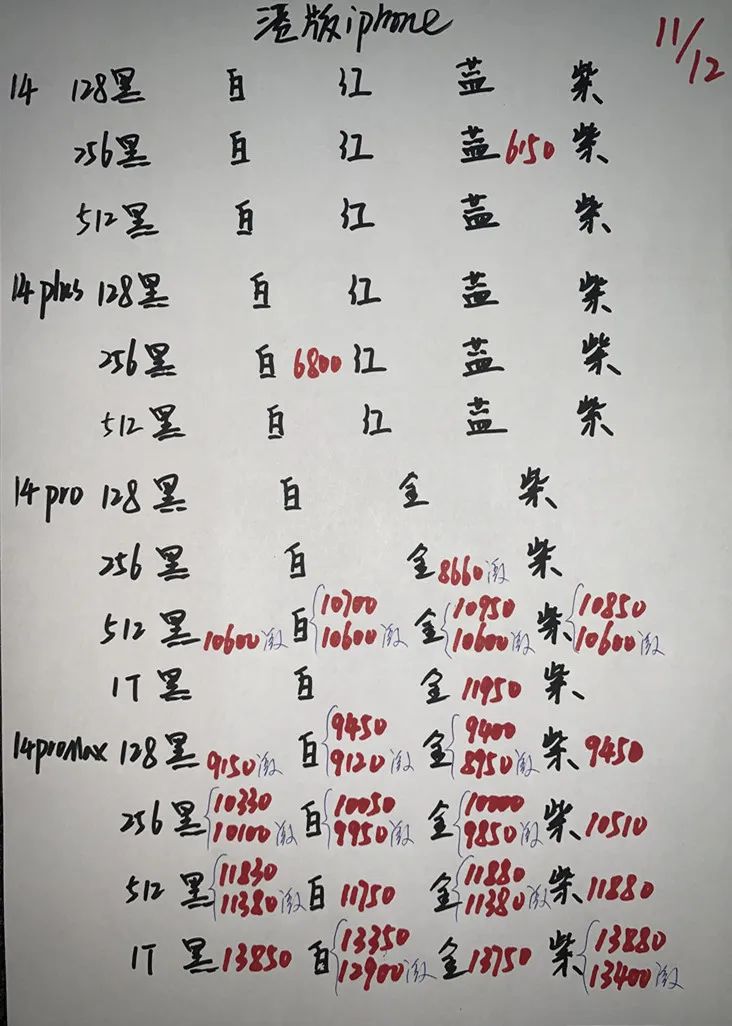 港版iphone 11/12
14 128黑 白 红 蓝 紫
256黑 白 红 蓝6150 紫
512黑 白 红 蓝 紫
14plus 128黑 白 红 蓝 紫
256黑 白6800 红 蓝 紫
512黑 白 红 蓝 紫
14pro 128黑 白 金 紫
256黑 白 金8660激 紫
512黑10600激 白{10700 10600激 金{10950 10600激 紫{10850 10600激
1T黑 白 金11950 紫
14proMax 128黑9150激 白{9450 9120激 金{9400 8950激 紫9450
256黑{10330 10100激 白{10050 9950激 金{10000 9850激 紫10510
512黑{11830 11380激 白11750 金{11880 11380激 紫11880
1T黑13850 白{13350 12900激 金13750 紫{13880 13400激